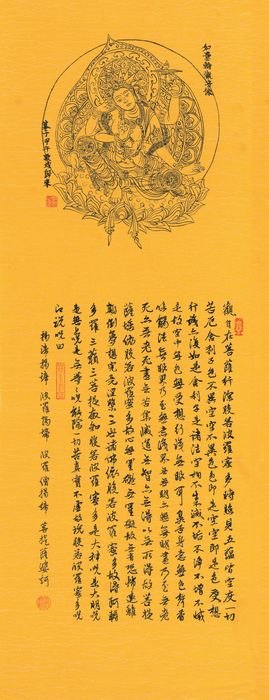 如意輪觀音像
觀自在菩薩行深般若波羅蜜多時照見五蘊皆空度一切
苦厄舍利子色不異空空不異色色即是空空即是色受想
行識亦復如是舍利子是諸法空相不生不滅不垢不淨不增不減
是故空中無色無受想行識無眼耳鼻舌身意無色聲香
味觸法無眼界乃至無意識界無無明亦無無明盡乃至無老
死亦無老死盡無苦集滅道無智亦無得以無所得故菩提
薩埵依般若波羅蜜多故心無罣礙無罣礙故無有恐怖遠離
顛倒夢想究竟涅槃三世諸佛依般若波羅蜜多故得阿耨
多羅三藐三菩提故知般若波羅蜜多是大神咒是大明咒
是無上咒是無等等咒能除一切苦真實不虛故說般若波羅蜜多咒
即說咒曰
揭諦揭諦 波羅揭諦 波羅僧揭諦 菩提薩婆訶